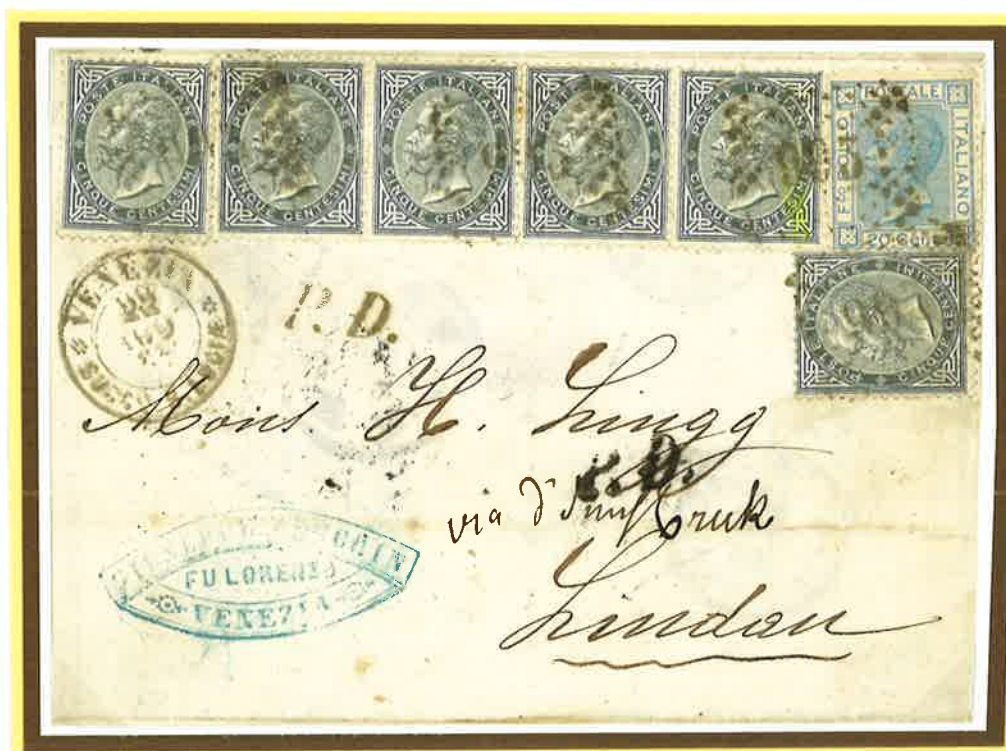 POSTE ITALIANE
CINQUE CENTESIMI
POSTE ITALIANE
CINQUE CENTESIMI
POSTE ITALIANE
CINQUE CENTESIMI
POSTE ITALIANE
CINQUE CENTESIMI
POSTE ITALIANE
CINQUE CENTESIMI
POSTALE
ITALIANO
BOLLO
20
POSTE ITALIANE
CINQUE CENTESIMI
VENEZIA
22
P.D.
Mons. H. Lingg
P.D.
via d'Innsbruk
Lindau
FU LORENZO
VENEZIA